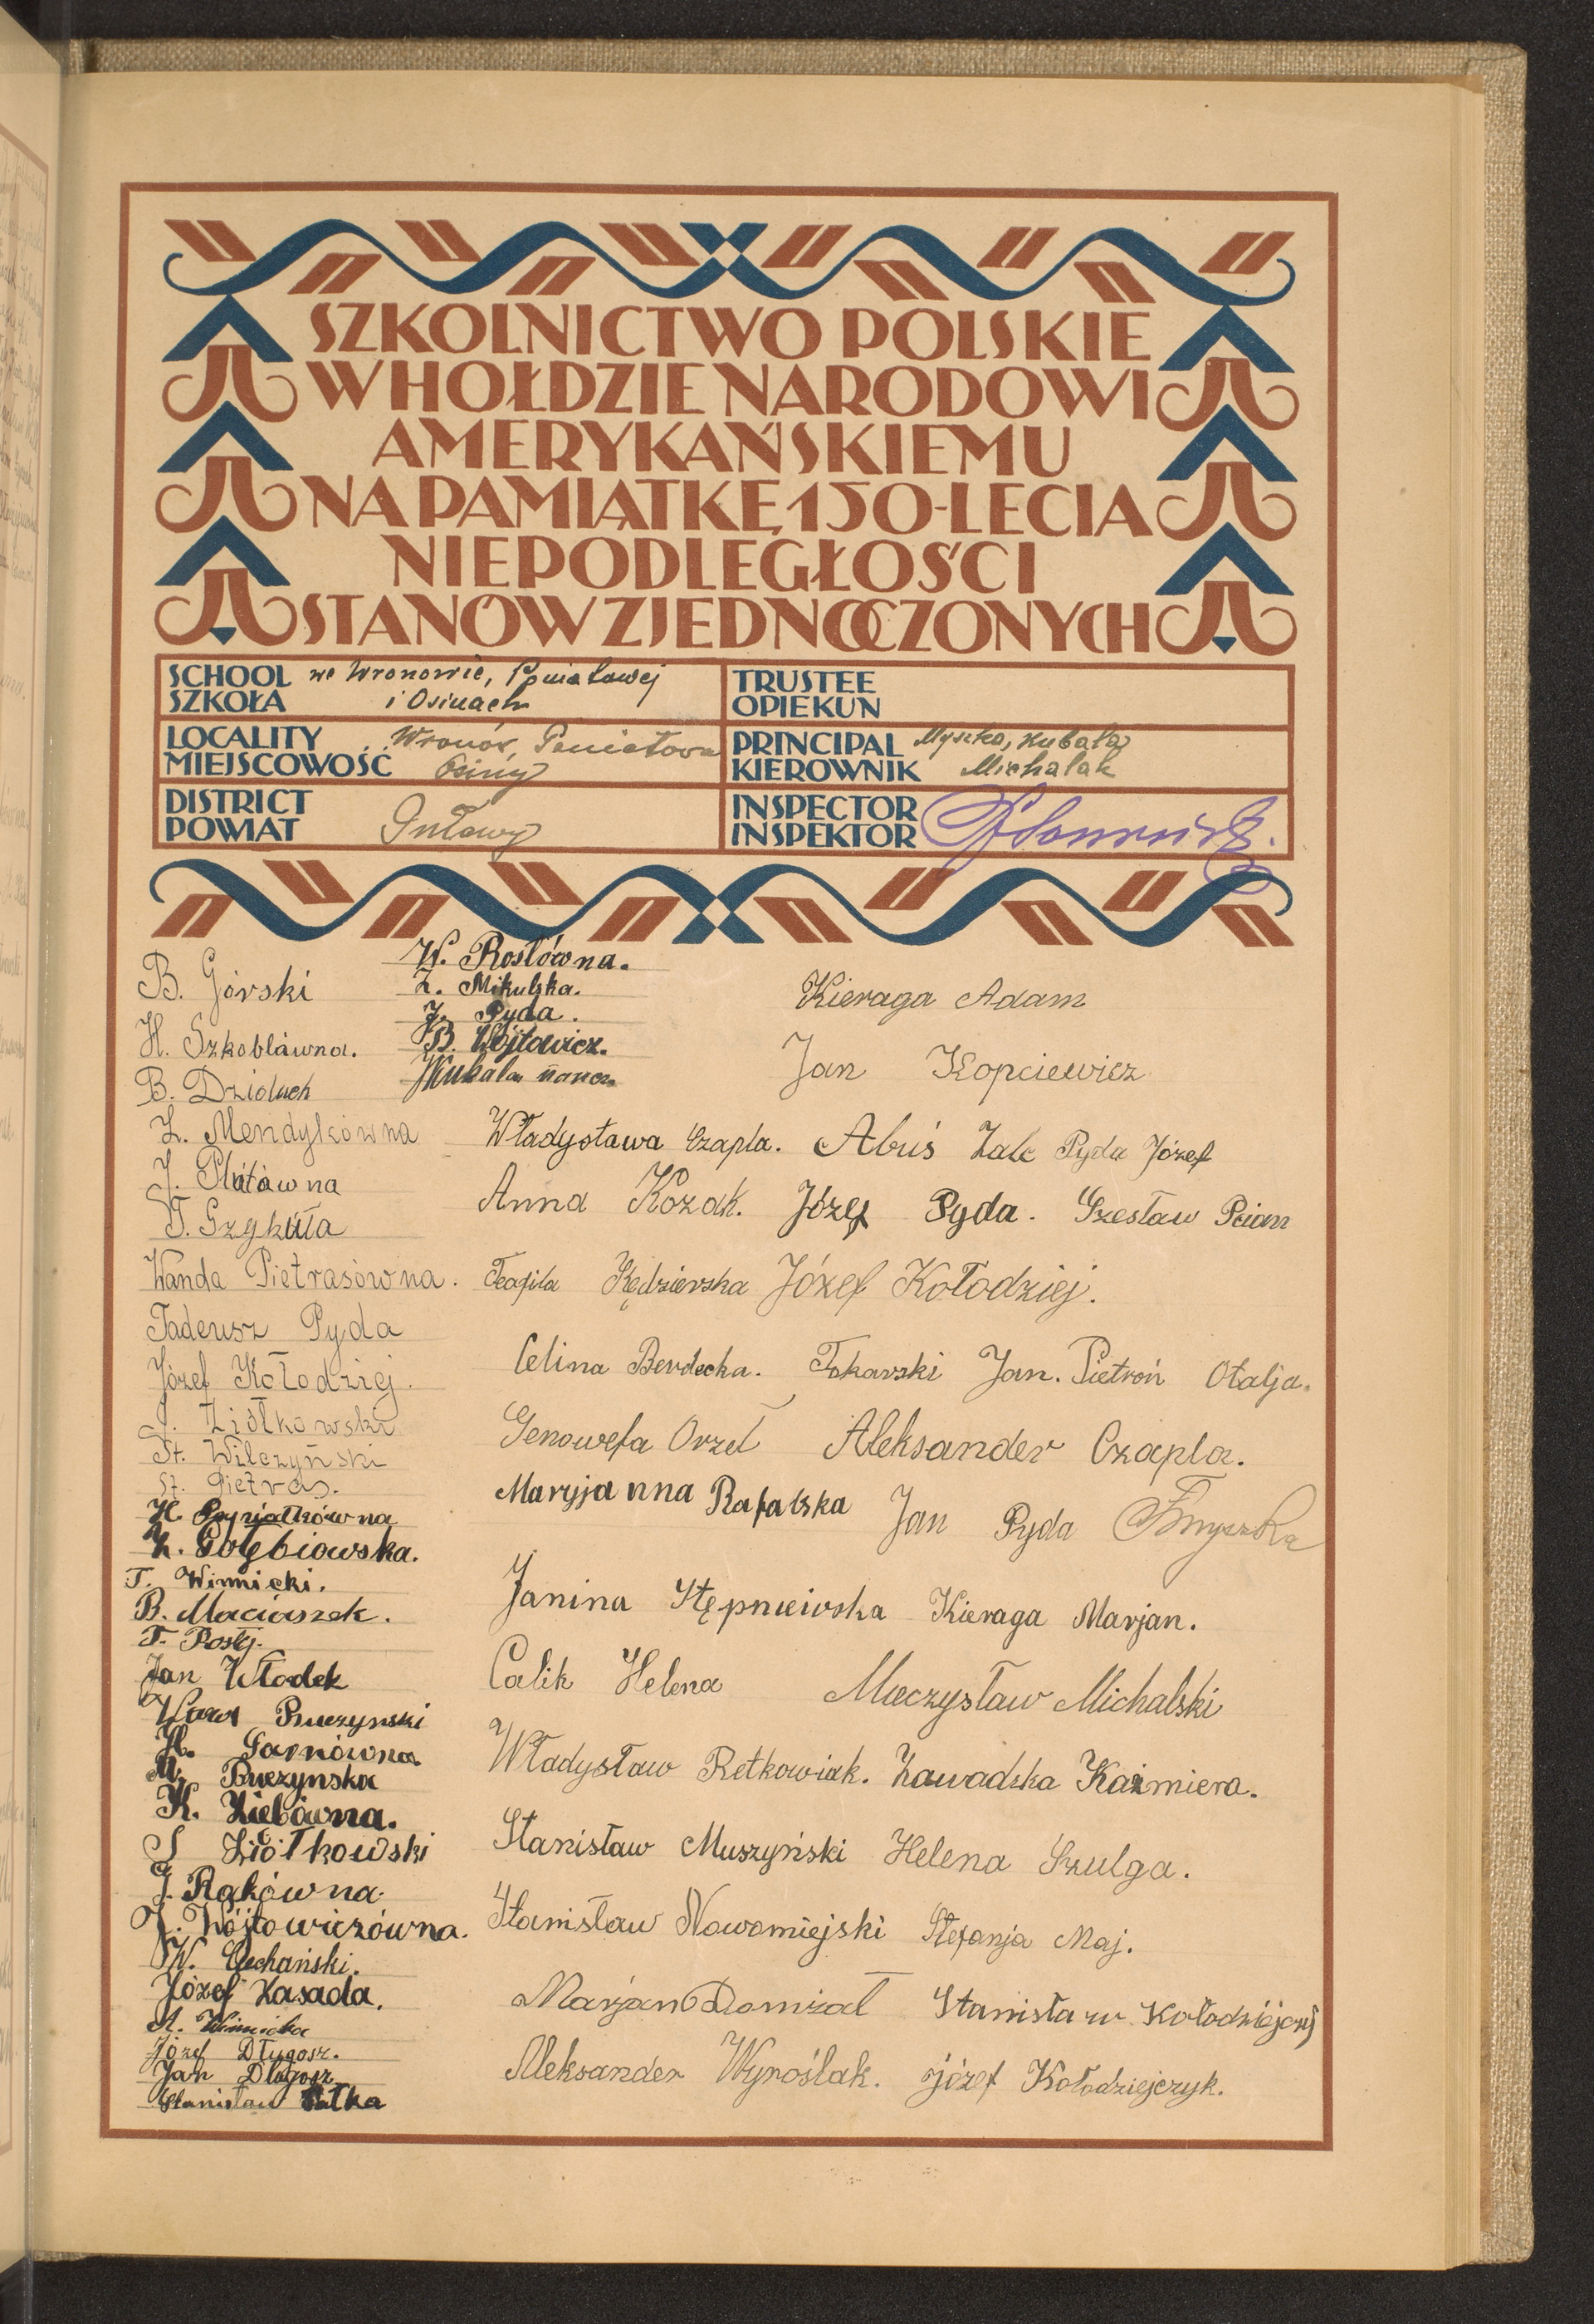 SZKOLNICTWO POLSKIE
W HOŁDZIE NARODOWI
AMERYKAŃSKIEMU
NA PAMIĄTKĘ 150-LECIA
NIEPODLEGŁOŚCI
STANÓW ZJEDNOCZONYCH
SCHOOL we Wronowie, Poniatowej
SZKOŁA i Osinach
TRUSTEE
OPIEKUN
LOCALITY Wronów, Poniatowa
MIEJSCOWOŚĆ Osiny
PRINCIPAL Myszka, Kubala
KIEROWNIK Michalak
DISTRICT
POWIAT Puławy
INSPECTOR
INSPEKTOR
W. Rosłówna.
Z. Mikulska.
J. Pyda.
B. Wójtowicz.
JKubala naucz.
B. Górski
H. Szkobláwna.
B. Dzioluch
Z. Mendykówna
J. Plútáwna
T. Szykúła
Wanda Pietrasówna.
Tadeusz Pyda
Józef Kołodziej.
J. Ziółkowski
St. Wilczyński
St. Pietras.
H.
Z. Gołębiowska.
T. Winnicki.
B. Maciaszek.
T. Posły.
Jan Włodek
Pruczynski
H. Sarnówna
M. Buczynska
K. Ziebówna.
S Ziółkowski
J. Rakówna.
J. Wójtowiczówna.
W. Ciechański.
Józef Zasada.
A. Winnicka
Józef Długosz.
Jan Długosz
Stanisław Pałka
Kieraga Adam
Jan Kopciewicz
Władysława Czapla. Abuś Zale Pyda Józef
Anna Kozak. Józef Pyda. Czesław Pcian
Teofila Kędzierska Józef Kołodziej.
Celina Berdecka. Tokarski Jan. Pietroń Otalja.
Genowefa Orzeł Aleksander Czapla.
Maryjanna Rafalska Jan Pyda FMyszka
Janina Stępniewska Kieraga Marjan.
Calik Helena Mieczysław Michalski
Władysław Retkowiak. Zawadzka Kaźmiera.
Stanisław Muszyński Helena Szulga.
Stanisław Nowomiejski Stefanja Maj.
Marjan Domżał Stanisław Kołodziejczyk
Aleksander Wyroślak. józef Kołodziejczyk.